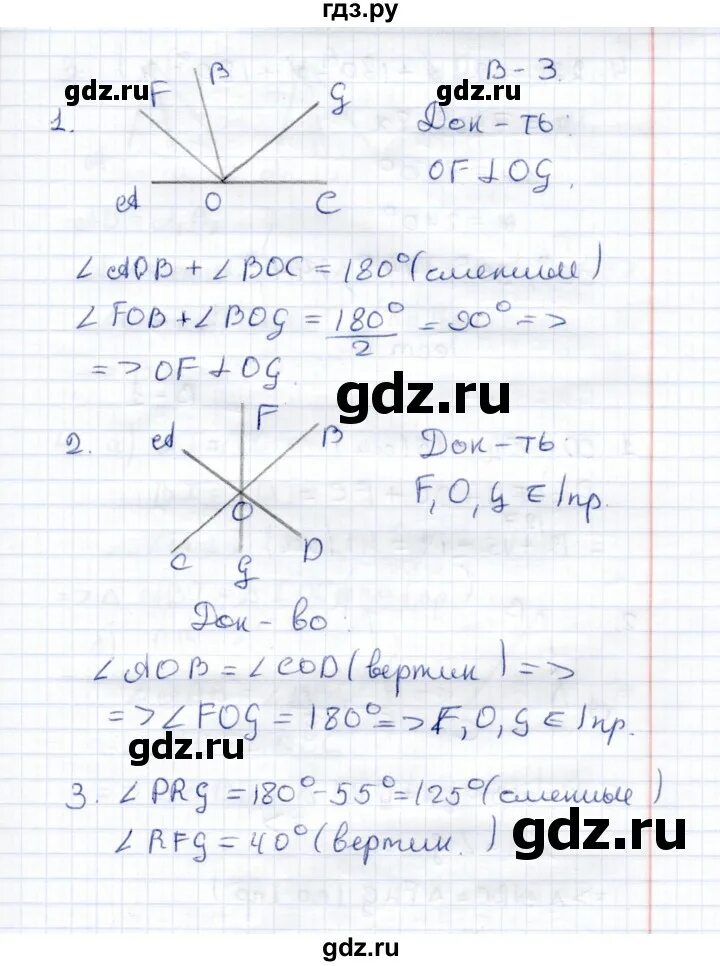 гдз.ру
gdz.ru
В - 3.
1.
F
B
G
A
O
C
Док - ть:
OF ⊥ OG.
∠AOB + ∠BOC = 180° (смежные)
∠FOB + ∠BOG = 180°/2 = 90° =>
=> OF ⊥ OG.
gdz.ru
2.
A
F
B
O
C
G
D
Док - ть
F, O, G ∈ 1 пр.
Док - во:
∠AOB = ∠COD (вертик) =>
=> ∠FOG = 180° => F, O, G ∈ 1 пр.
gdz.ru
3. ∠PRG = 180° - 55° = 125° (смежные)
∠RFG = 40° (вертик.)
gdz.ru
gdz.ru